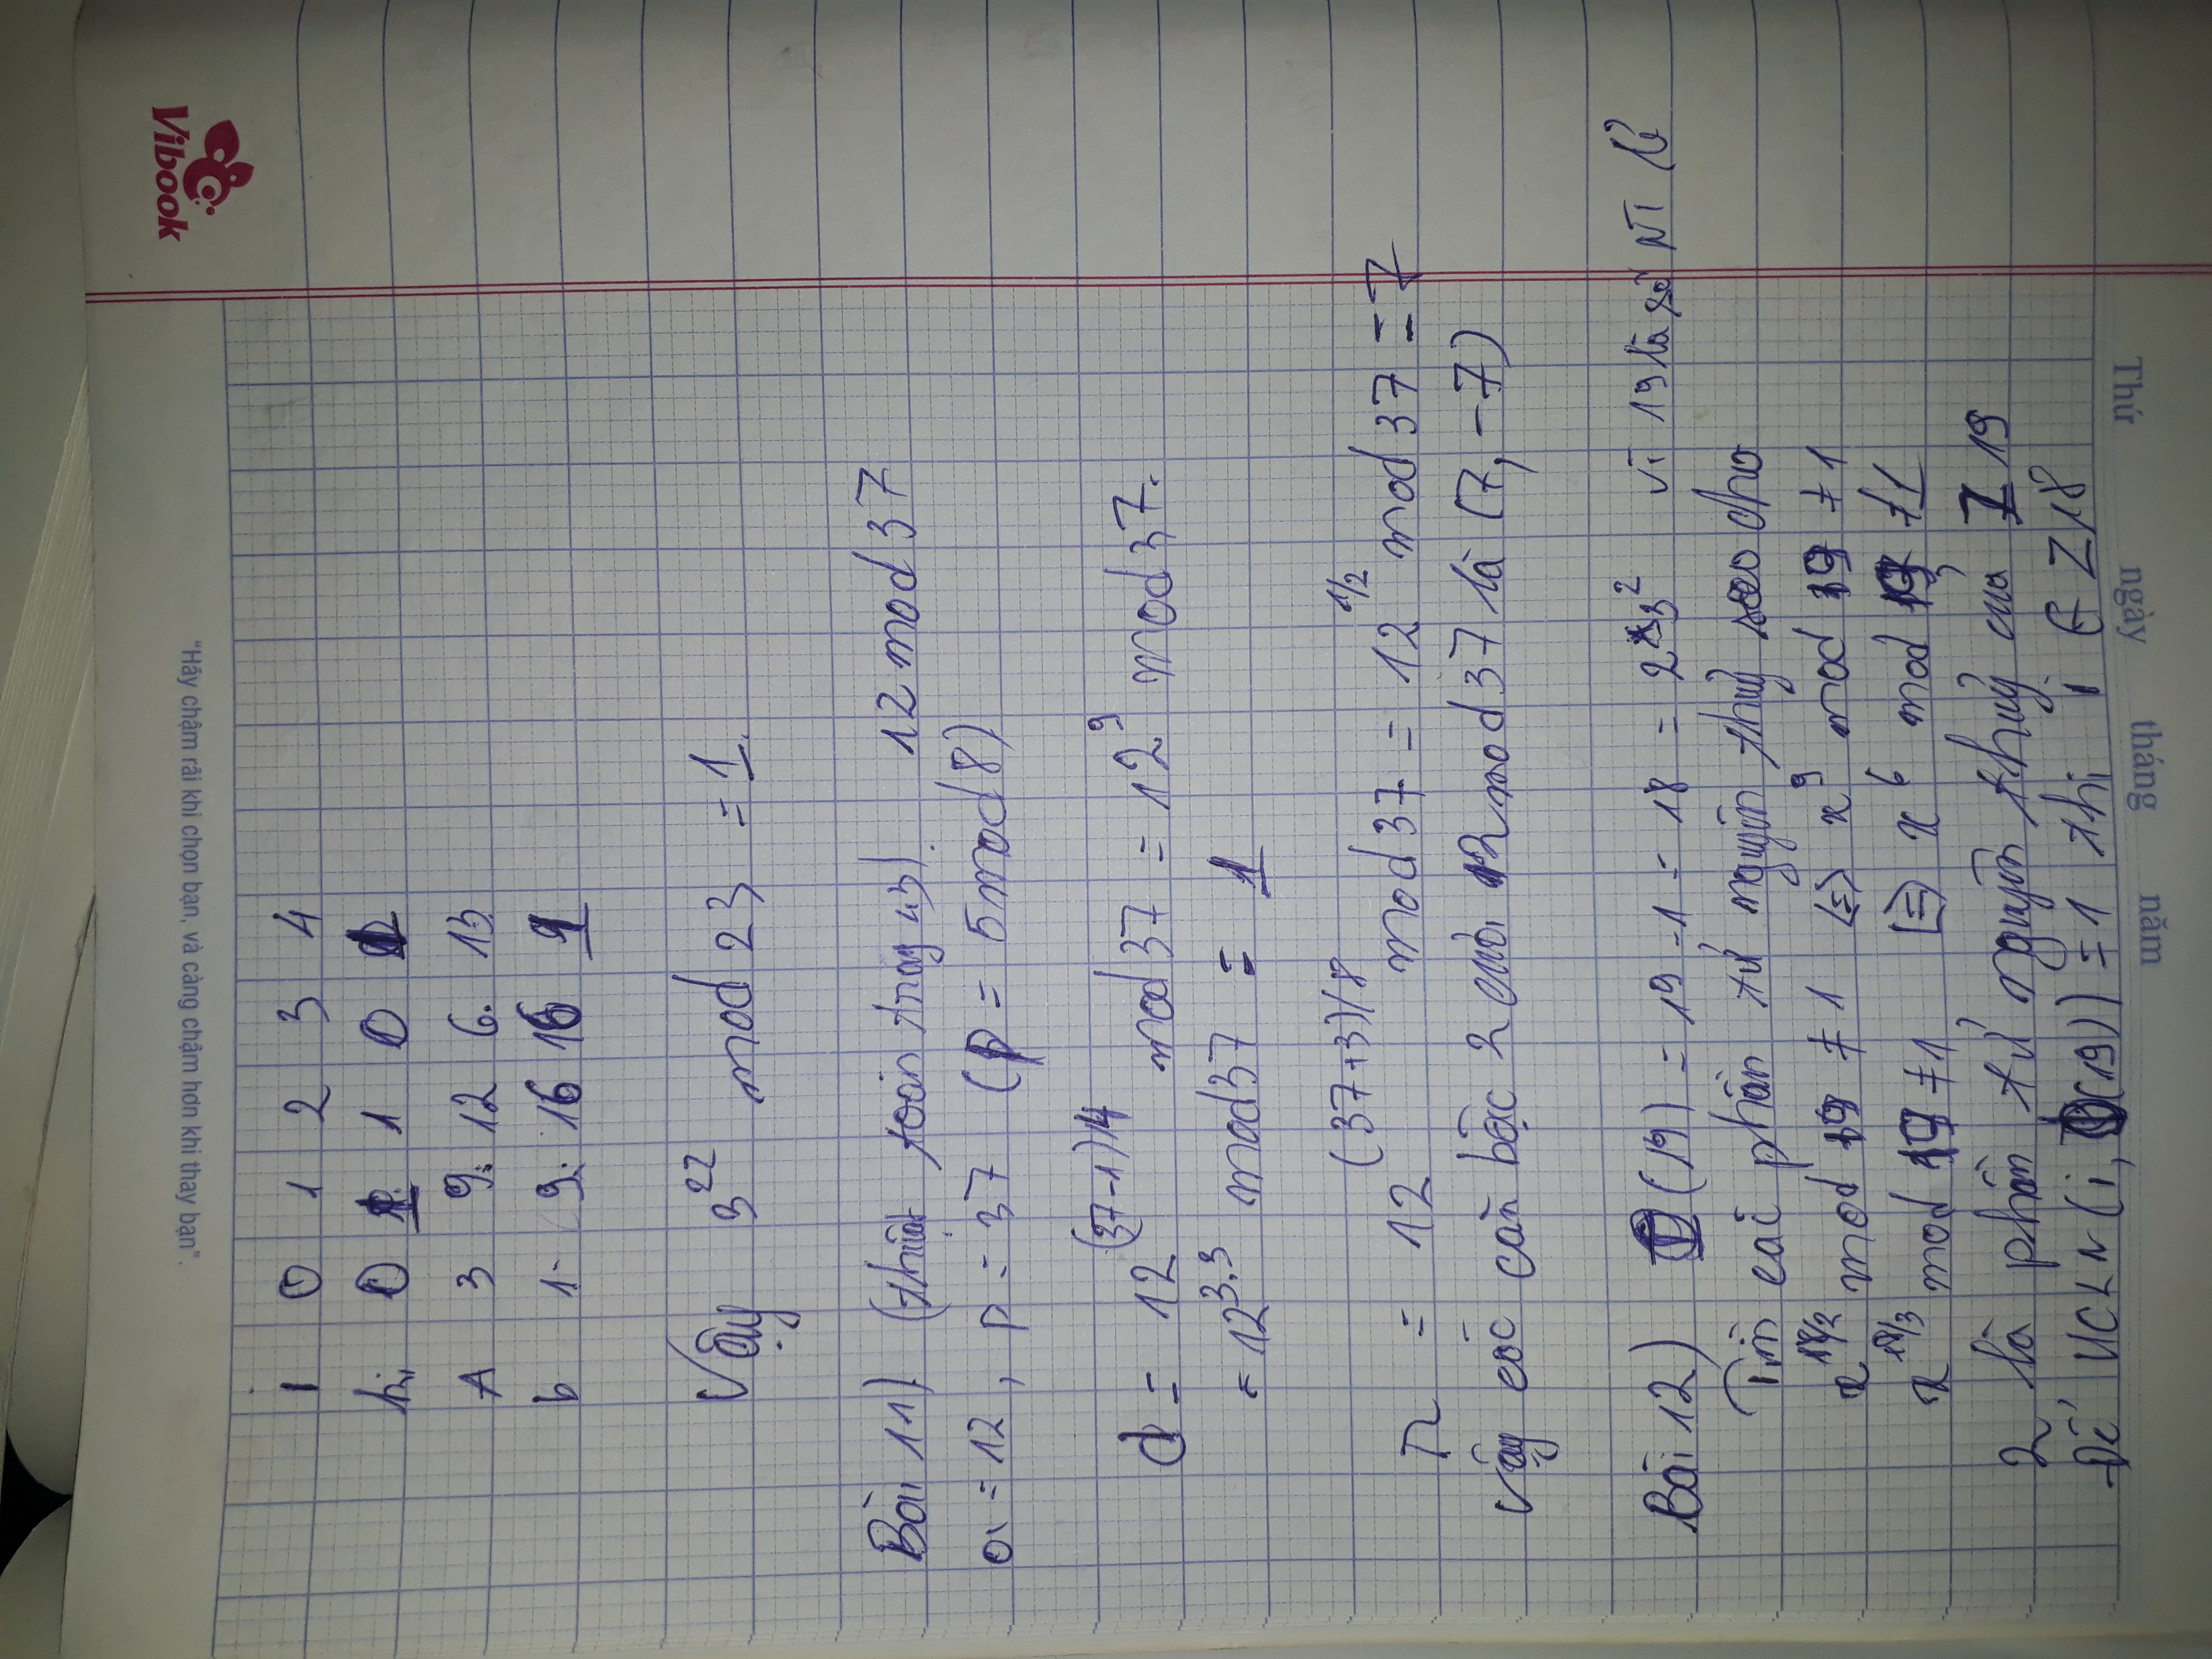 Vibook
"Hãy chậm rãi khi chọn bạn, và càng chậm hơn khi thay bạn".
i 0 1 2 3 4
ki 0 1 1 0 1
A 3 9 12 6 13
b 1 9 16 16 1
Vậy 3^22 mod 23 = 1.
Bài 11) (thuật toán trang 43). 12 mod 37
a = 12, p = 37 (p = 5 mod 8)
d = 12^(37-1)/4 mod 37 = 12^9 mod 37.
= 12^3.3 mod 37 = 1
r = 12^(37+3)/8 mod 37 = 12^1/2 mod 37 = 7
Vậy các căn bậc 2 của 12 mod 37 là (7, -7)
Bài 12) Φ(19) = 19 - 1 = 18 = 2*3^2 vì 19 là số NT lẻ
Tìm các phần tử nguyên thuỷ sao cho
x^18/2 mod 19 ≠ 1 <=> x^9 mod 19 ≠ 1
x^18/3 mod 19 ≠ 1 <=> x^6 mod 19 ≠ 1
2 là phần tử nguyên thuỷ của Z 19
Để UCLN (i, Φ(19)) = 1 thì i ∈ Z18
Thứ ngày tháng năm